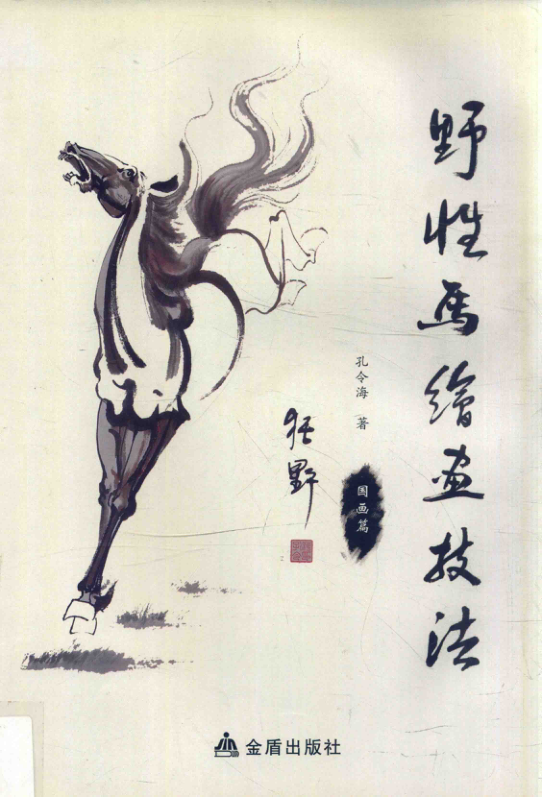 野性马繪画技法
孔令海 著
狂野
国画篇
金盾出版社